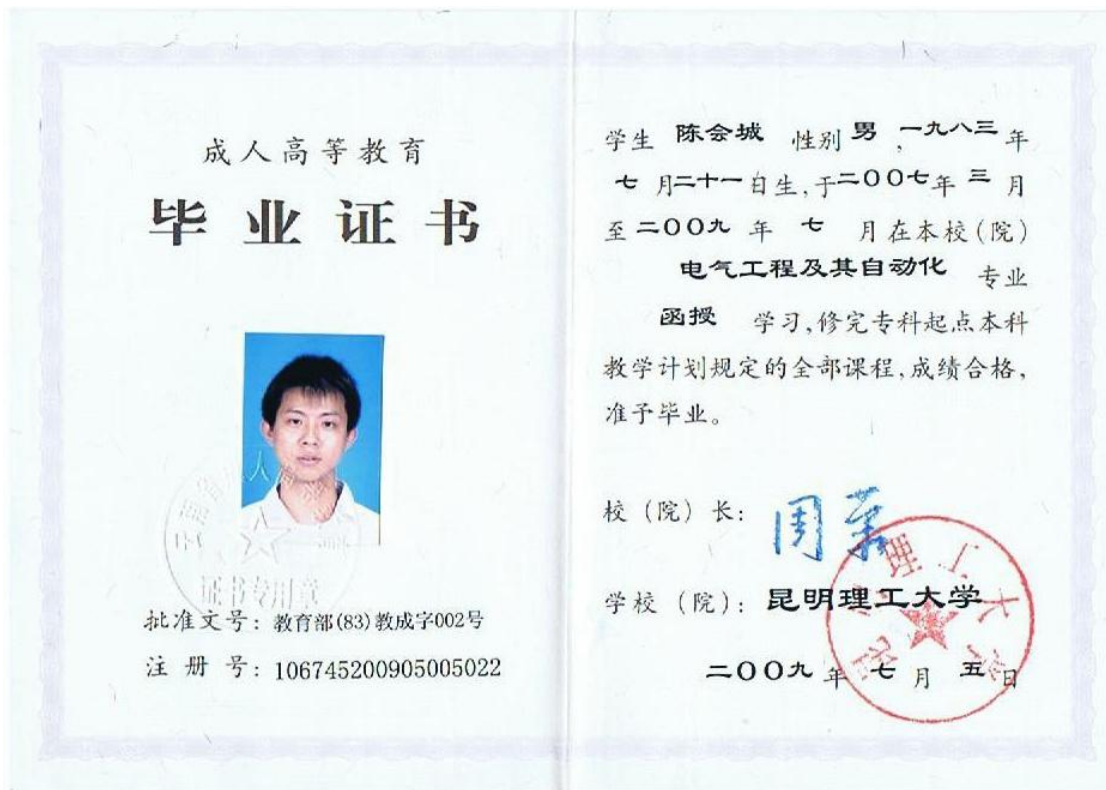 成人高等教育
毕业证书
证书专用章
批准文号：教育部(83)教成字002号
注 册 号：106745200905005022
学生 陈会城 性别 男，一九八三年
七 月二十一日生，于二〇〇七年 三 月
至二〇〇九 年 七 月在本校(院)
电气工程及其自动化 专业
函授 学习，修完专科起点本科
教学计划规定的全部课程，成绩合格，
准予毕业。
校（院）长：周荣
学校（院）：昆明理工大学
二〇〇九 年 七 月 五 日
昆明理工大学